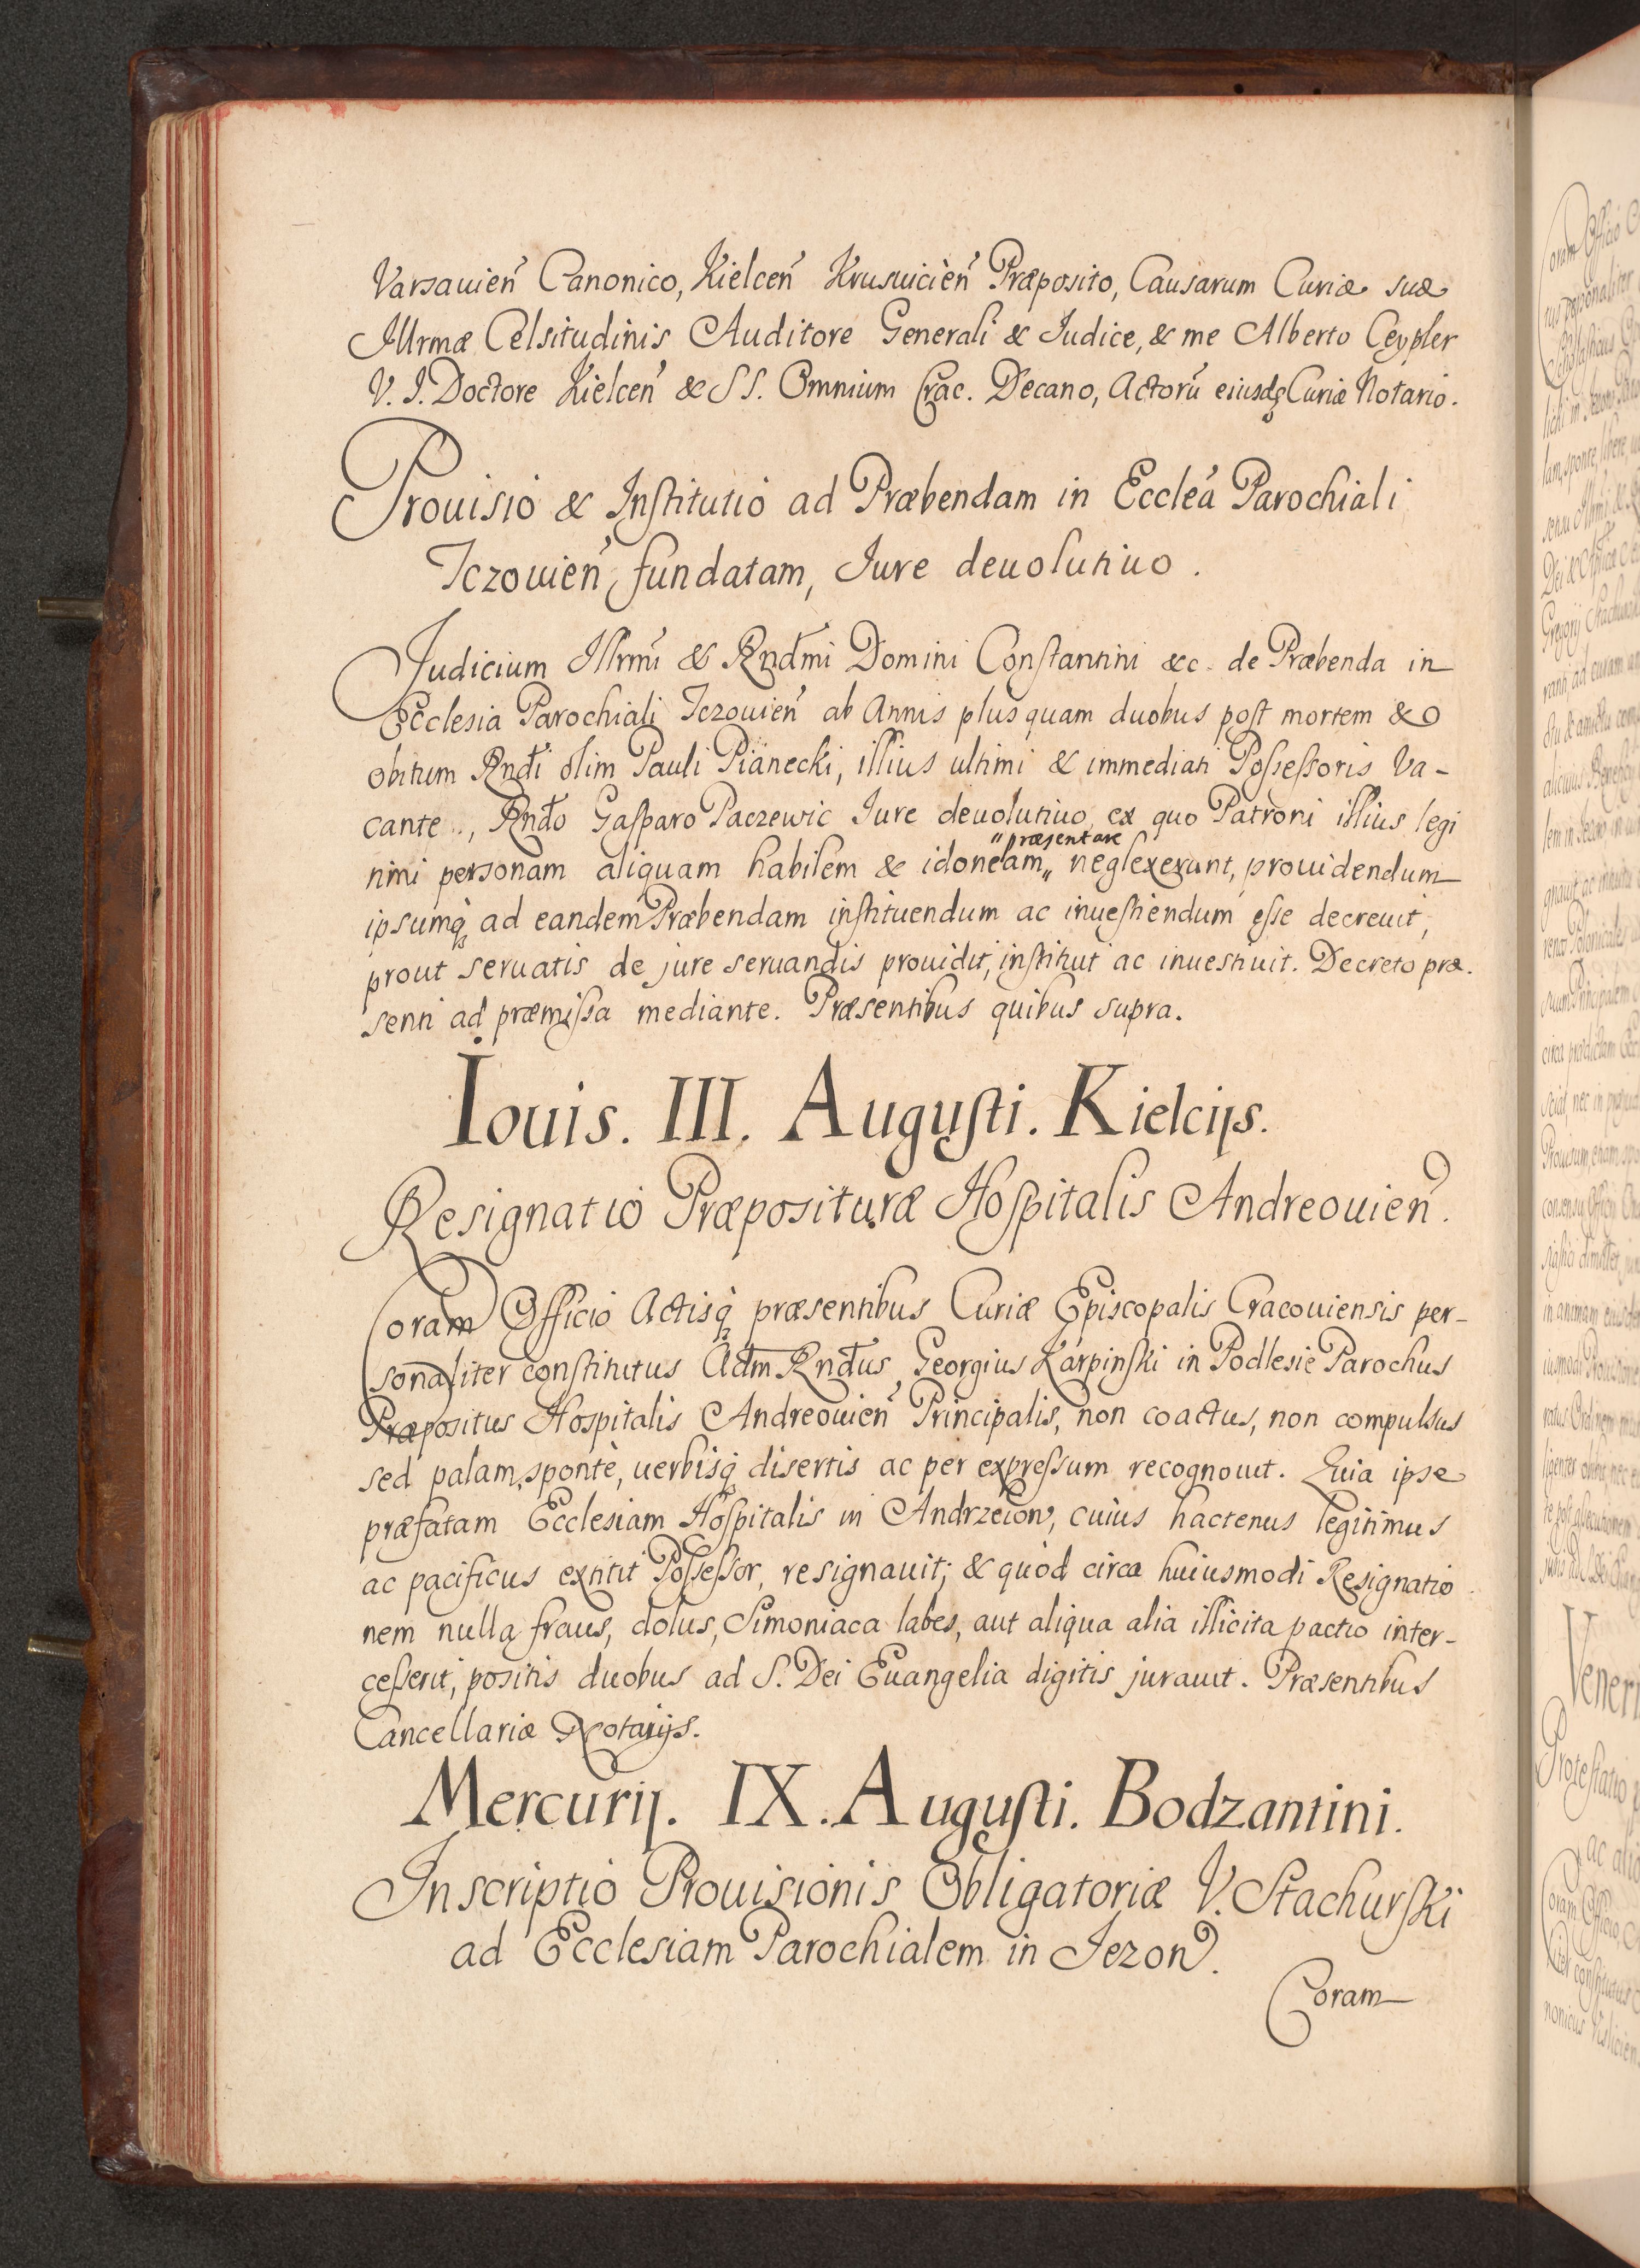 Varsauień Canonico, Kielceń Krusuicień Præposito, Causarum Curiæ suæ
Illrmæ Celsitudinis Auditore Generali & Iudice, & me Alberto Ceypler
V. I. Doctore Kielceń & SS. Omnium Crac. Decano, Actorū eiusdę Curiæ Notario.
Prouisio & Institutio ad Præbendam in Ecclea Parochiali
Iezouień fundatam, Iure deuolutiuo.
Judicium Illrmi & Rndmi Domini Constantini &c. de Præbenda in
Ecclesia Parochiali Iezouień ab Annis plus quam duobus post mortem &
obitum Rndi olim Pauli Pianecki, illius ultimi & immediati Possessoris Va-
cante, Rndo Gasparo Paczewic Iure deuolutiuo, ex quo Patroni illius legi
timi personam aliquam habilem & idoneam „præsentare„ neglexerunt, prouidendum
ipsumq; ad eandem Præbendam instituendum ac inuestiendum esse decreuit,
prout seruatis de jure seruandis prouidit, instituit ac inuestiuit. Decreto præ-
senti ad præmissa mediante. Præsentibus quibus supra.
Iouis. III. Augusti. Kielcijs.
Resignatio Præposituræ Hospitalis Andreouień.
Coram Officio Actisq; præsentibus Curiæ Episcopalis Cracouiensis per-
sonaliter constitutus Adm Rndus Georgius Karpinski in Podlesie Parochus
Præpositus Hospitalis Andreouień Principalis, non coactus, non compulsus
sed palam, sponte, uerbisq; disertis ac per expressum recognouit. Quia ipse
præfatam Ecclesiam Hospitalis in Andrzeiow, cuius hactenus legitimus
ac pacificus extitit Possessor, resignauit; & quòd circa huiusmodi Resignatio
nem nulla fraus, dolus, Simoniaca labes, aut aliqua alia illicita pactio inter-
cesserit, positis duobus ad S. Dei Euangelia digitis jurauit. Præsentibus
Cancellariæ Notarijs.
Mercurij. IX. Augusti. Bodzantini.
Inscriptio Prouisionis Obligatoriæ V. Stachurski
ad Ecclesiam Parochialem in Iezow.
Coram